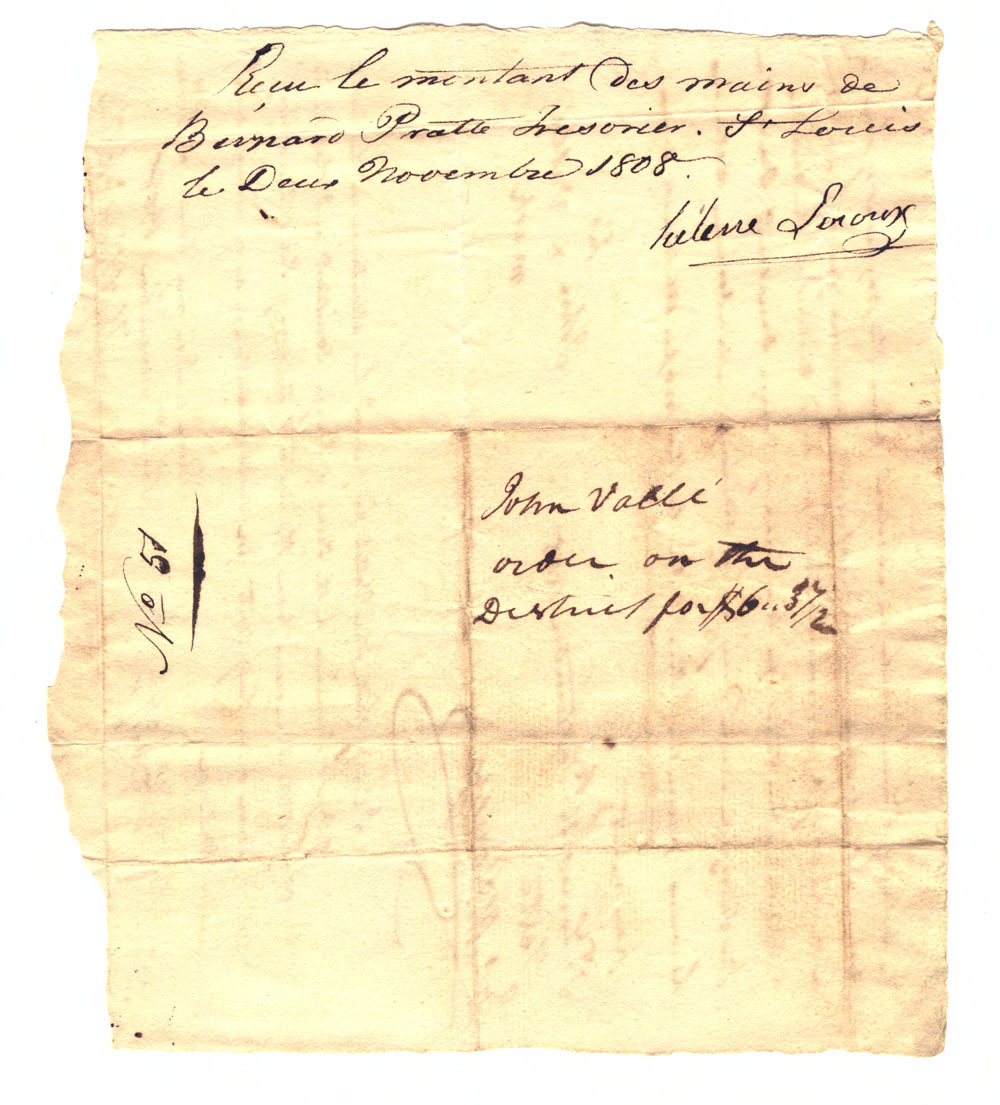 Recu le montant des mains de
Bernard Pratte Tresorier. St Louis
le Deux Novembre 1808.
hélene Leroux
John Vallé
order on the
District for $6..37/2
No 51